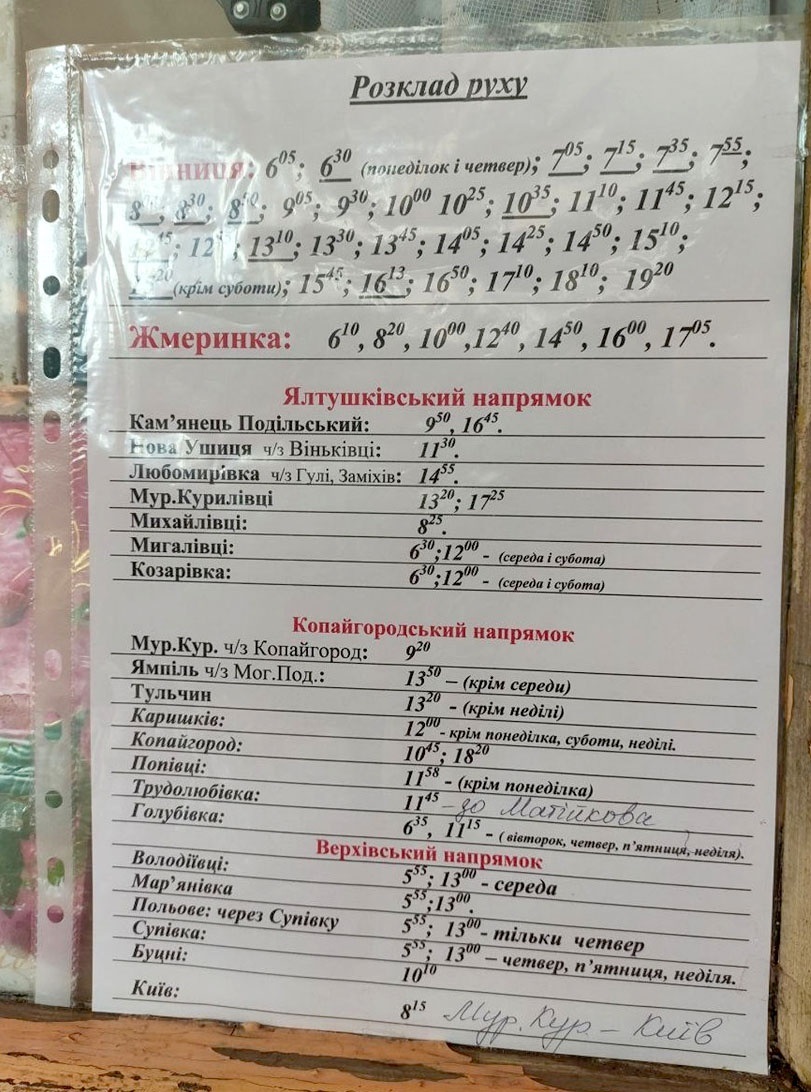 Розклад руху
Вінниця: 6⁰⁵; 6³⁰ (понеділок і четвер); 7⁰⁵; 7¹⁵; 7³⁵; 7⁵⁵;
8³⁰; 9⁰⁵; 9³⁰; 10⁰⁰ 10²⁵; 10³⁵; 11¹⁰; 11⁴⁵; 12¹⁵;
13¹⁰; 13³⁰; 13⁴⁵; 14⁰⁵; 14²⁵; 14⁵⁰; 15¹⁰;
(крім суботи); 15⁴⁵; 16¹³; 16⁵⁰; 17¹⁰; 18¹⁰; 19²⁰
Жмеринка: 6¹⁰, 8²⁰, 10⁰⁰,12⁴⁰, 14⁵⁰, 16⁰⁰, 17⁰⁵.
Ялтушківський напрямок
Кам’янець Подільський: 9⁵⁰, 16⁴⁵.
Нова Ушиця ч/з Віньківці: 11³⁰.
Любомирівка ч/з Гулі, Заміхів: 14⁵⁵.
Мур.Курилівці 13²⁰; 17²⁵
Михайлівці: 8²⁵.
Мигалівці: 6³⁰;12⁰⁰ - (середа і субота)
Козарівка: 6³⁰;12⁰⁰ - (середа і субота)
Копайгородський напрямок
Мур.Кур. ч/з Копайгород: 9²⁰
Ямпіль ч/з Мог.Под.: 13⁵⁰ – (крім середи)
Тульчин 13²⁰ - (крім неділі)
Каришків: 12⁰⁰ - крім понеділка, суботи, неділі.
Копайгород: 10⁴⁵; 18²⁰
Попівці: 11⁵⁸ - (крім понеділка)
Трудолюбівка: 11⁴⁵ – до Матійкова
Голубівка: 6³⁵, 11¹⁵ - (вівторок, четвер, п’ятниця, неділя).
Верхівський напрямок
Володіївці: 5⁵⁵; 13⁰⁰ - середа
Мар’янівка 5⁵⁵;13⁰⁰.
Польове: через Супівку 5⁵⁵; 13⁰⁰- тільки четвер
Супівка: 5⁵⁵; 13⁰⁰ – четвер, п’ятниця, неділя.
Буцні: 10¹⁰
Київ: 8¹⁵ Мур. Кур. – Київ